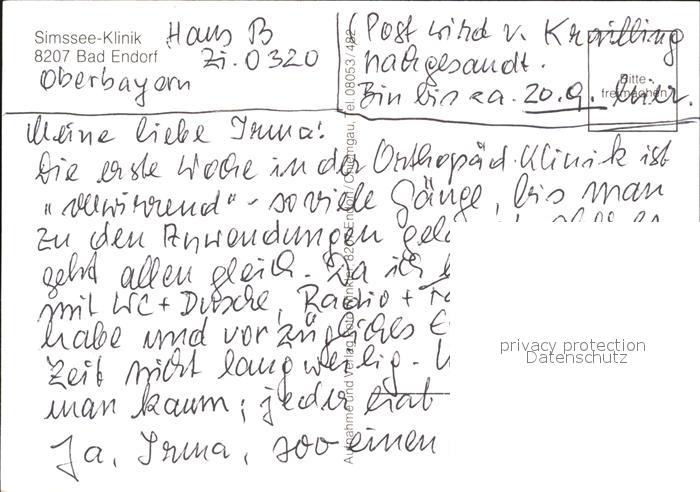 Simssee-Klinik
8207 Bad Endorf
Oberbayern
Haus B
Zi. 0320
Post wird v. Krailling
nachgesandt.
Bin bis ca. 20.9. hier.
Bitte
freimachen
Meine liebe Irma!
Die erste Woche in der Orthopäd. Klinik ist
"verwirrend" - soviele Gänge, bis man
zu den Anwendungen
geht allen gleich. Da ich
mit WC + Dusche, Radio +
habe und vorzügliches
Zeit nicht langweilig.
man kaum; jeder hat
Ja, Irma, soo einen
Aufnahme und Verlag Foto
8207 Endorf / Chiemgau, Tel. 08053/482
privacy protection
Datenschutz